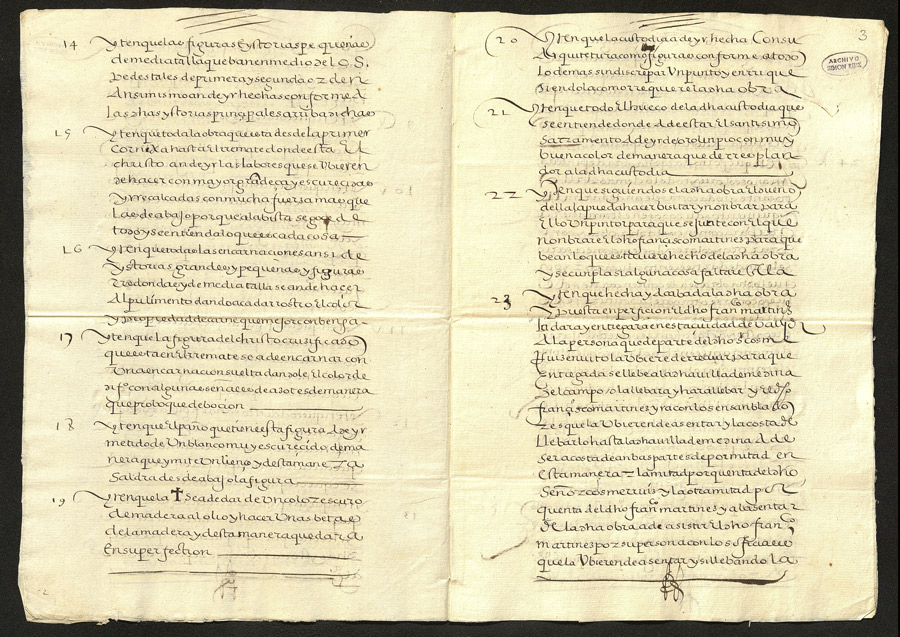 14 Yten que las figuras e ystorias pequeñas
de media talla que ban en medio de los
pedestales de primera y segunda orden
ansimismo an de yr hechas conforme a
las dhas ystorias prinçipales arriba dichas
15 Yten que toda la obra que esta desde la primer
Cornixa hasta el rremate donde esta El
christo an de yr las labores que se Ubieren
de hacer con mayor grandeça y escureçidas
y rrealcadas con mucha fuersa mas que
la de abajo porque la bista se goze de
todo y se entienda lo que es cada cosa
16 Yten que todas las encarnaciones ansi de
Ystorias grandes y pequeñas y figuras
rredondas y de media talla se an de haçer
Al pulimento dando a cada rrostro El color
y propiedad de carne que mejor conbenga
17 Yten que la figura del christo crusificado
que esta en El rremate se a de encarnar con
Una encarnacion suelta dandole El color de
difº con algunas señales de açotes de manera
que proboque deboçion
18 Yten que El paño que tiene esta figura A de yr
metido de Un blanco muy escureçido de ma
nera que ymite Un lienço y desta manera
Saldra desde abajo la figura
19 Yten que la † se a de dar de Un color escuro
de madera al olio y haçer Unas betas
de la madera y desta manera quedara
En superfection
20 Yten que la custodia a de yr hecha Con su
Arquitetura como figuras conforme a todo
Lo demas sin discrepar Un punto y enrrique
siendola como rrequiere la dha obra
21 Yten que todo El hueco de la dha custodia que
se entiende donde A de estar El santisimo
Sacramento A de yr de oro linpio con muy
buena color de manera que de rresplan
dor a la dha custodia
22 Yten que si quieren dos el a dha obra El dueño
della la pueda haçer bisitar y nonbrar para
Ello Un pintor para que se junte con El que
nonbrare El dho françisco martines para que
bean lo que estubiere hecho de la dha obra
Y se cunpla si alguna cosa faltare En Ella
23 Yten que hecha y Acabada la dha obra
Y puesta en perfiçion El dho franco martines
la dara y entregara en esta ciudad de Vallid
A la persona que de parte del dho Sr cosme
Ruis en uirto la Ubiere de rreçiuir para que
Entregada se llebe a la dha uilla de medina
del campo do la llebara y hara llebar y El dho
françisco martines y racon los ensanblado
res que la Ubieren de asentar y la costa de
llebarlo hasta la dha uilla de medina A de
ser a costa de anbas partes de por mitad en
esta manera la mitad por quenta del dho
Señor cosme ruis y la otra mitad por
quenta del dho franco martines y al asentar
de la dha obra a de asistir El dho franco
martines por su persona con los ofiçiales
que la Ubieren de asentar y si llebando la
3
ARCHIVO
SIMON RUIZ